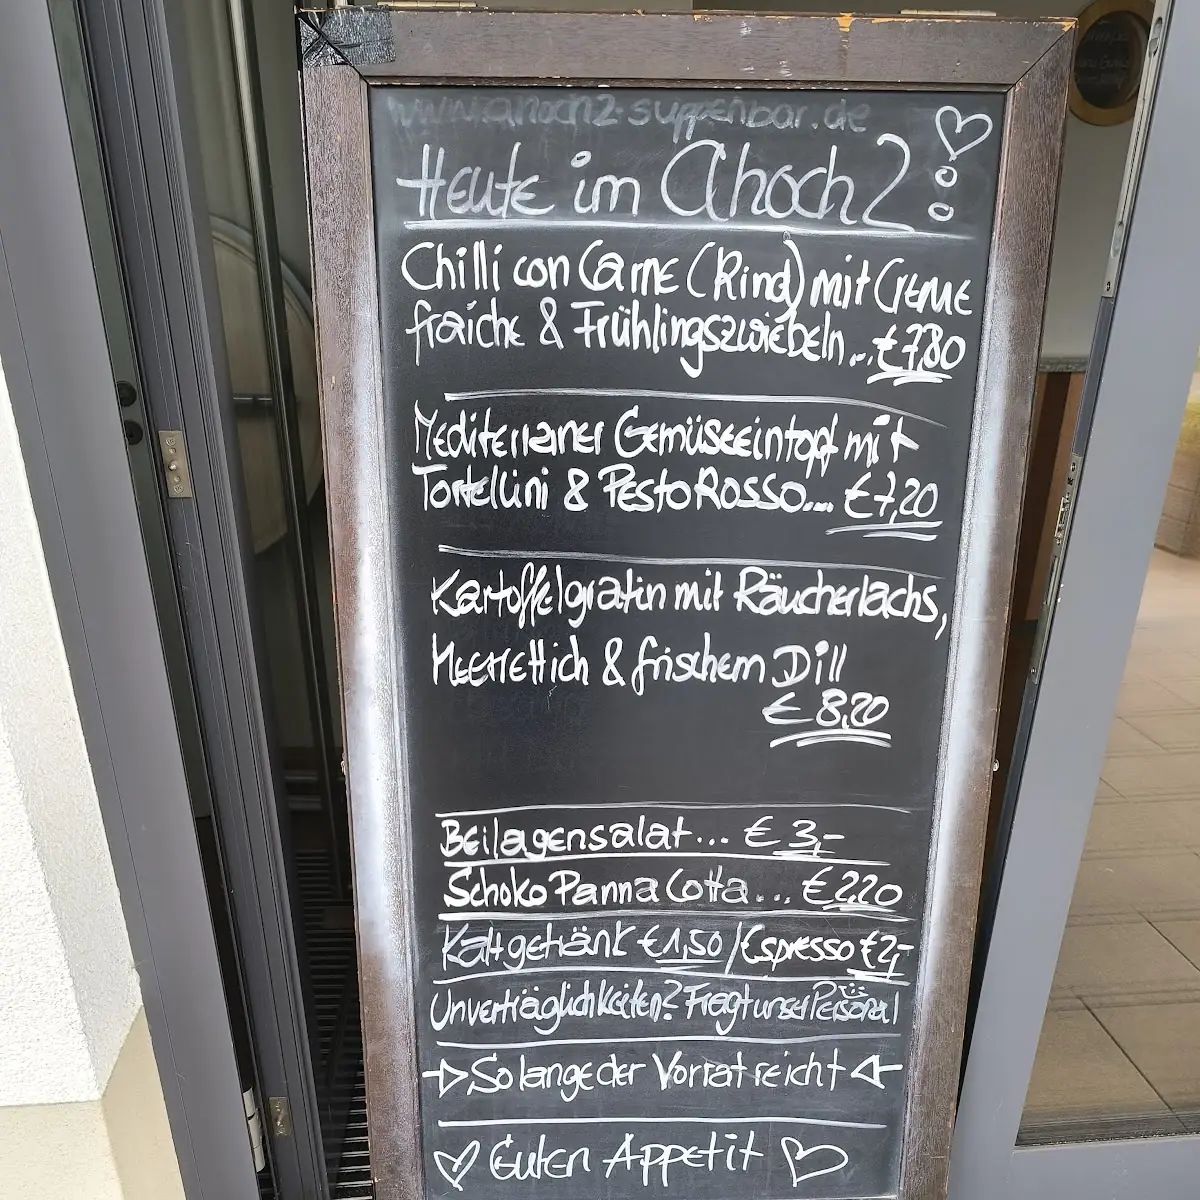 www.ahoch2-suppenbar.de
Heute im Ahoch2
Chilli con Carne (Rind) mit Creme
fraiche & Frühlingszwiebeln... € 7,80
Mediterraner Gemüseeintopf mit
Tortellini & Pesto Rosso... € 7,20
Kartoffelgratin mit Räucherlachs,
Meerrettich & frischem Dill
€ 8,20
Beilagensalat... € 3,-
Schoko Panna Cotta... € 2,20
Kaltgetränk € 1,50 / Espresso € 2,-
Unverträglichkeiten? Fragt unser Personal
Solange der Vorrat reicht
Guten Appetit